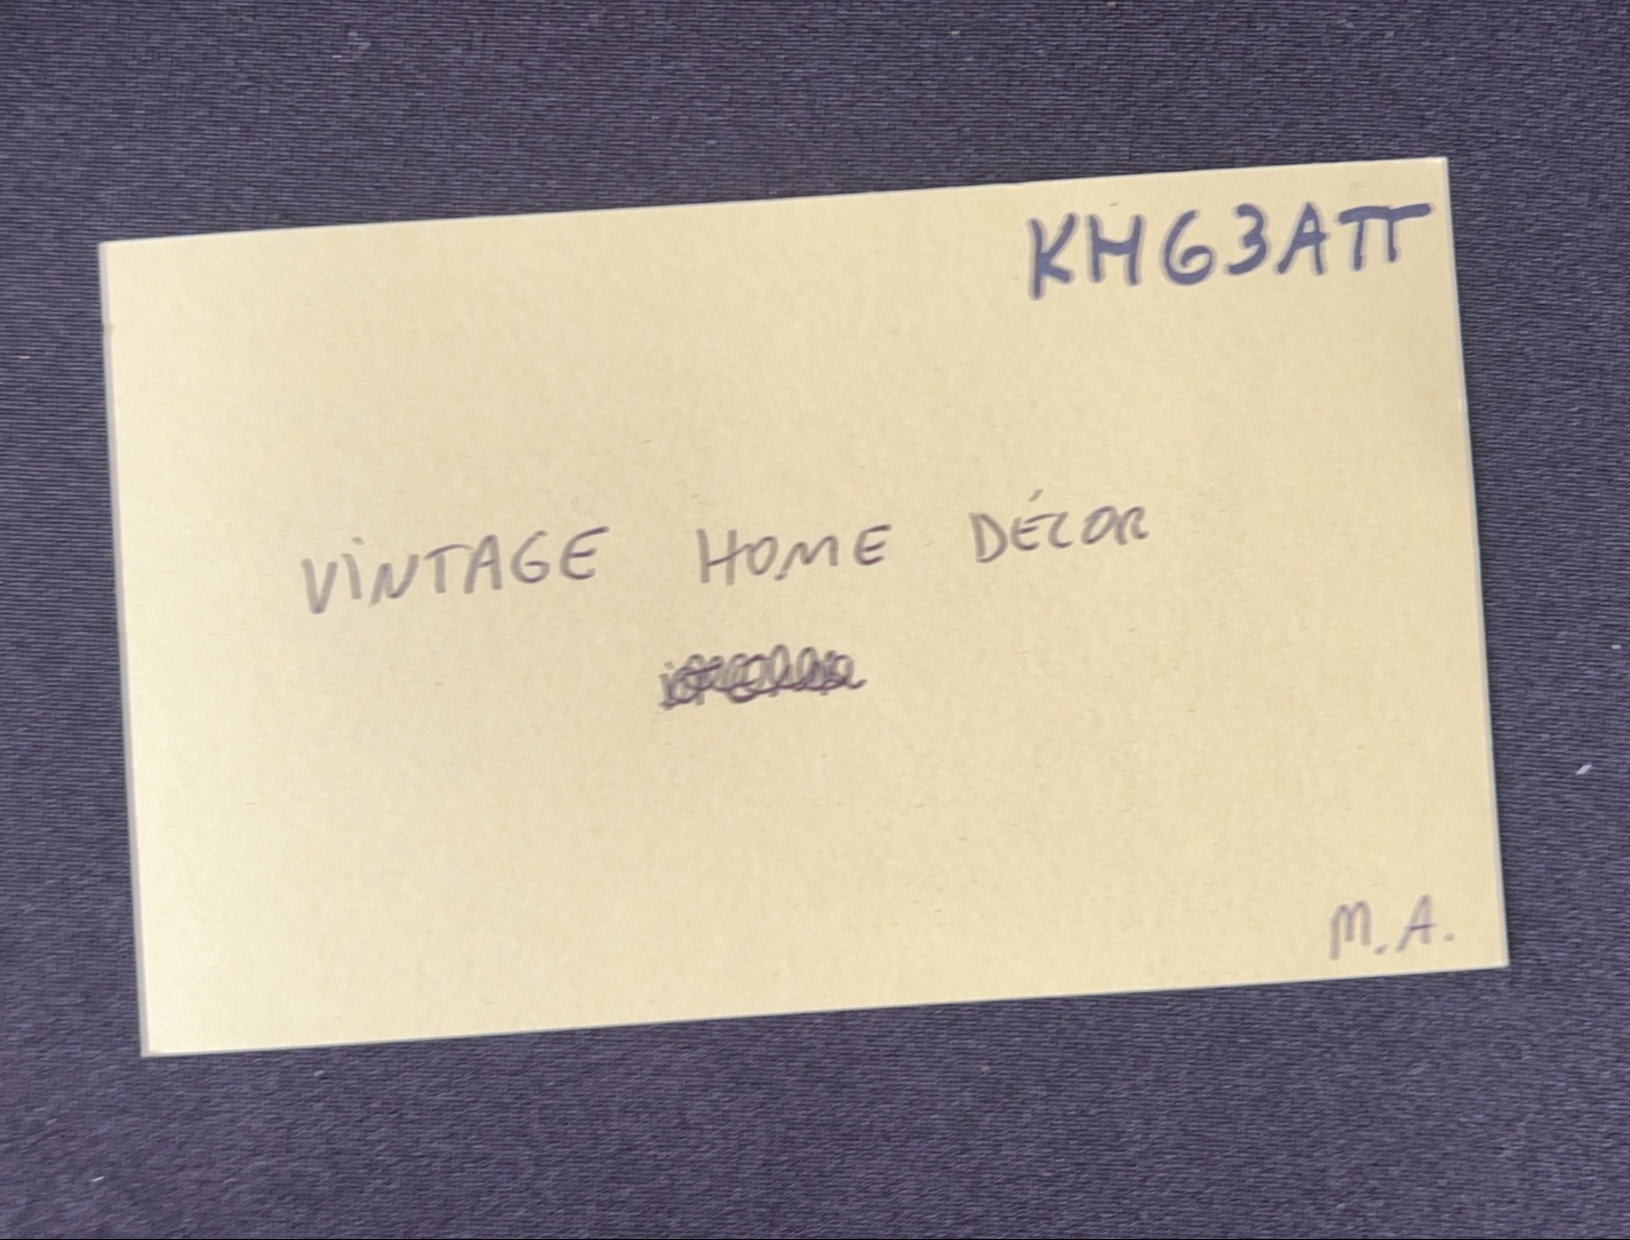 KH63ATT
VINTAGE HOME DÉCOR
M.A.